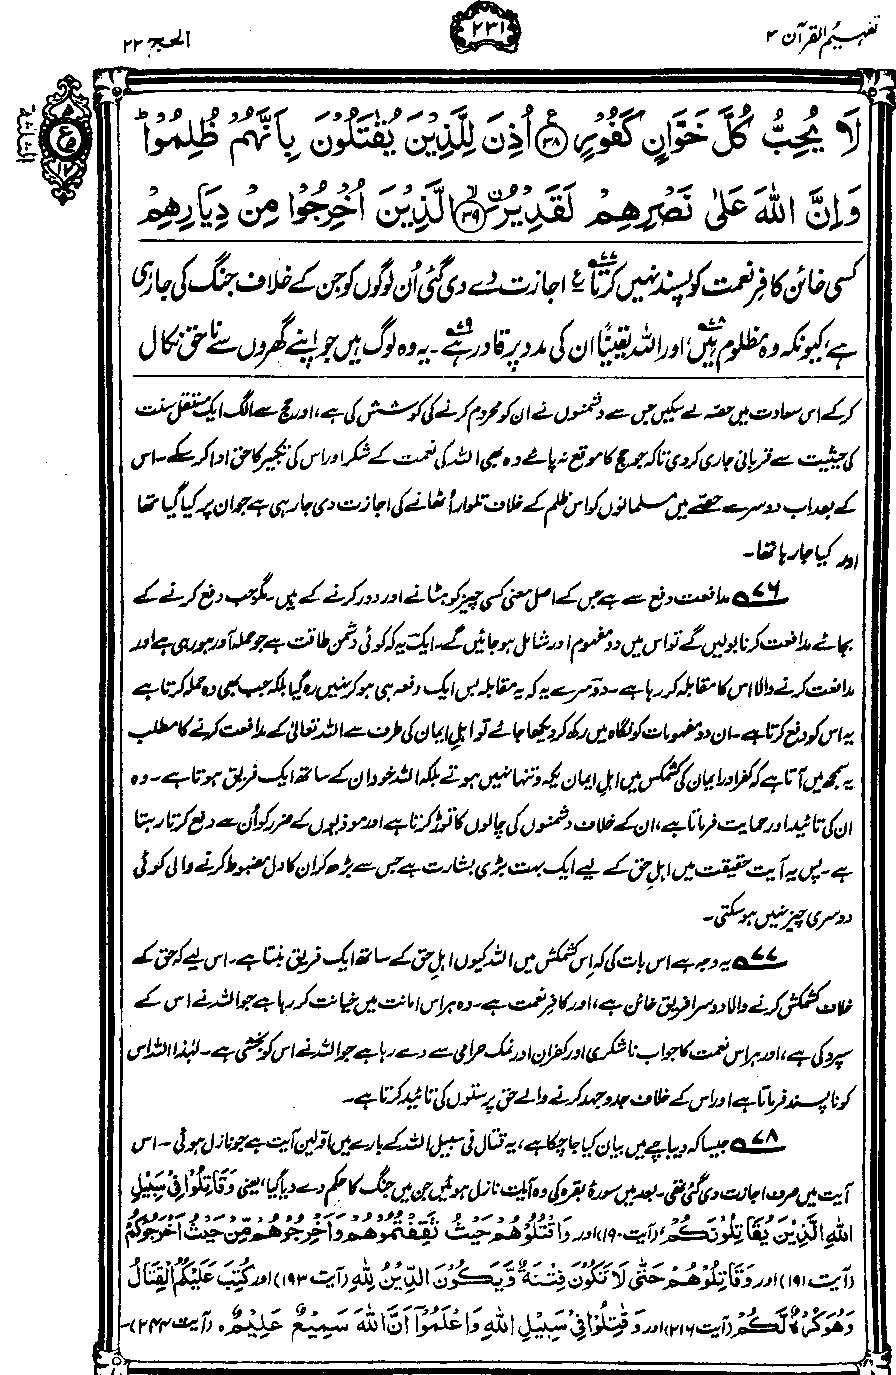 تفہیم القرآن ۳
۲۳۱
الحج ۲۲
لَا يُحِبُّ كُلَّ خَوَّانٍ كَفُوْرٍ ﴿۳۸﴾ اُذِنَ لِلَّذِيْنَ يُقٰتَلُوْنَ بِاَنَّهُمْ ظُلِمُوْا ؕ
وَاِنَّ اللّٰهَ عَلٰى نَصْرِهِمْ لَقَدِيْرُ ۙ﴿۳۹﴾ الَّذِيْنَ اُخْرِجُوْا مِنْ دِيَارِهِمْ
ع
۵
۱۲
الثلثۃ
کسی خائن کافرِ نعمت کو پسند نہیں کرتا۷۷ ؏ اجازت دے دی گئی اُن لوگوں کو جن کے خلاف جنگ کی جا رہی
ہے، کیونکہ وہ مظلوم ہیں۷۸، اور اللہ یقیناً ان کی مدد پر قادر ہے۷۹۔ یہ وہ لوگ ہیں جو اپنے گھروں سے ناحق نکال
کر کے اس سعادت میں حصہ لے سکیں جس سے دشمنوں نے ان کو محروم کرنے کی کوشش کی ہے، اور حج سے الگ ایک مستقل سنت
کی حیثیت سے قربانی جاری کر دی تاکہ جو حج کا موقع نہ پائے وہ بھی اللہ کی نعمت کے شکر اور اس کی تکبیر کا حق ادا کر سکے۔ اس
کے بعد اب دوسرے حصے میں مسلمانوں کو اس ظلم کے خلاف تلوار اُٹھانے کی اجازت دی جا رہی ہے جو ان پر کیا گیا تھا
اور کیا جا رہا تھا۔
۷۶؎ مدافعت دفع سے ہے جس کے اصل معنی کسی چیز کو ہٹانے اور دور کرنے کے ہیں۔ مگر جب دفع کرنے کے
بجائے مدافعت کرنا بولیں گے تو اس میں دو مفہوم اور شامل ہو جائیں گے۔ ایک یہ کہ کوئی دشمن طاقت ہے جو حملہ آور ہو رہی ہے اور
مدافعت کرنے والا اس کا مقابلہ کر رہا ہے۔ دوسرے یہ کہ یہ مقابلہ بس ایک دفعہ ہی ہو کر نہیں رہ گیا بلکہ جب بھی وہ حملہ کرتا ہے
یہ اس کو دفع کرتا ہے۔ ان دو مفہومات کو نگاہ میں رکھ کر دیکھا جائے تو اہلِ ایمان کی طرف سے اللہ تعالیٰ کے مدافعت کرنے کا مطلب
یہ سمجھ میں آتا ہے کہ کفر اور ایمان کی کشمکش میں اہلِ ایمان یکہ و تنہا نہیں ہوتے بلکہ اللہ خود ان کے ساتھ ایک فریق ہوتا ہے۔ وہ
ان کی تائید اور حمایت فرماتا ہے، ان کے خلاف دشمنوں کی چالوں کا توڑ کرتا ہے اور موذیوں کے ضرر کو اُن سے دفع کرتا رہتا
ہے۔ پس یہ آیت حقیقت میں اہلِ حق کے لیے ایک بہت بڑی بشارت ہے جس سے بڑھ کر ان کا دل مضبوط کرنے والی کوئی
دوسری چیز نہیں ہو سکتی۔
۷۷؎ یہ وجہ ہے اس بات کی کہ اِس کشمکش میں اللہ کیوں اہلِ حق کے ساتھ ایک فریق بنتا ہے۔ اس لیے کہ حق کے
خلاف کشمکش کرنے والا دوسرا فریق خائن ہے، اور کافرِ نعمت ہے۔ وہ ہر اس امانت میں خیانت کر رہا ہے جو اللہ نے اس کے
سپرد کی ہے، اور ہر اس نعمت کا جواب ناشکری اور کفران اور نمک حرامی سے دے رہا ہے جو اللہ نے اس کو بخشی ہے۔ لہٰذا اللہ اس
کو ناپسند فرماتا ہے اور اس کے خلاف جدوجہد کرنے والے حق پرستوں کی تائید کرتا ہے۔
۷۸؎ جیسا کہ دیباچے میں بیان کیا جا چکا ہے، یہ قتال فی سبیل اللہ کے بارے میں اوّلین آیت ہے جو نازل ہوئی۔ اس
آیت میں صرف اجازت دی گئی تھی۔ بعد میں سورۂ بقرہ کی وہ آیات نازل ہوئیں جن میں جنگ کا حکم دے دیا گیا، یعنی وَقَاتِلُوْا فِیْ سَبِیْلِ
اللّٰهِ الَّذِیْنَ یُقَاتِلُوْنَكُمْ، (آیت ۱۹۰) اور وَاقْتُلُوْهُمْ حَیْثُ ثَقِفْتُمُوْهُمْ وَاَخْرِجُوْهُمْ مِّنْ حَیْثُ اَخْرَجُوْكُمْ
(آیت ۱۹۱) اور وَقَاتِلُوْهُمْ حَتّٰى لَا تَكُوْنَ فِتْنَةٌ وَّیَكُوْنَ الدِّیْنُ لِلّٰهِ (آیت ۱۹۳) اور كُتِبَ عَلَیْكُمُ الْقِتَالُ
وَهُوَ كُرْهٌ لَّكُمْ (آیت ۲۱۶) اور وَقَاتِلُوْا فِیْ سَبِیْلِ اللّٰهِ وَاعْلَمُوْا اَنَّ اللّٰهَ سَمِیْعٌ عَلِیْمٌ ٥ (آیت ۲۴۴)۔